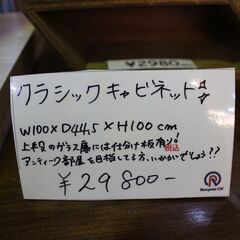 ¥2980
クラシックキャビネット☆☆
W100×D44.5×H100cm
上段のガラス扉には仕分け板有り!
アンティーク部屋を目指してる方、いかがでしょう??
税込
¥29800-
Recycle Off